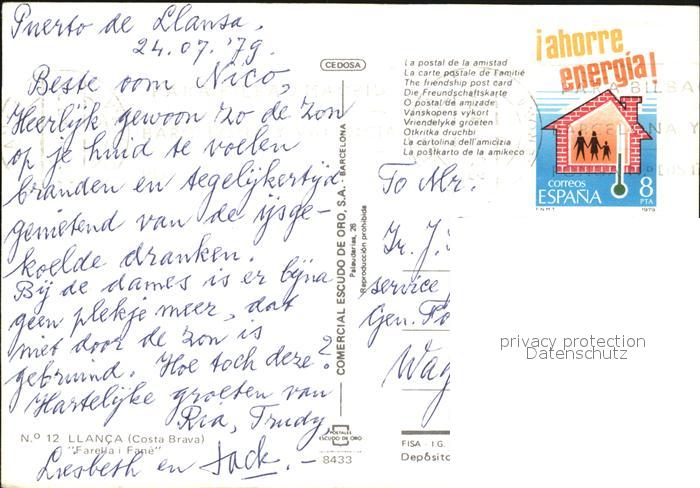 Puerto de Llansa.
24.07.'79.
Beste oom Nico,
Heerlijk gewoon zo de zon
op je huid te voelen
branden en tegelijkertijd
genietend van de ijsge-
koelde dranken.
Bij de dames is er bijna
geen plekje meer, dat
niet door de zon is
gebruind. Hoe toch deze?
Hartelijke groeten van
Ria, Trudy,
Liesbeth en Jack.-
N.º 12 LLANÇA (Costa Brava)
"Farella i Fané"
CEDOSA
COMERCIAL ESCUDO DE ORO, S.A. - BARCELONA
Palaudarias, 26
Reproducción prohibida
POSTALES
ESCUDO DE ORO
8433
La postal de la amistad
La carte postale de l'amitié
The friendship post card
Die Freundschaftskarte
O postal de amizade
Vanskopens vykort
Vriendelyke groeten
Otkritka druchbi
La cartolina dell'amicizia
La poŝtkarto de la amikeco
¡ahorre
energía!
correos
ESPAÑA
8
PTA
F.N.M.T.
1979
To Mr.
Ir. J.
service
Gen. Fo
Wag
privacy protection
Datenschutz
FISA - I.G.
Depósito